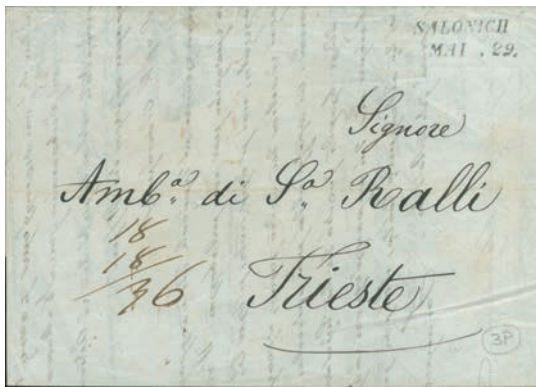 SALONICH
MAI . 29.
Signore
Amb.ª di S.ª Ralli
18
18/36
Trieste
3P